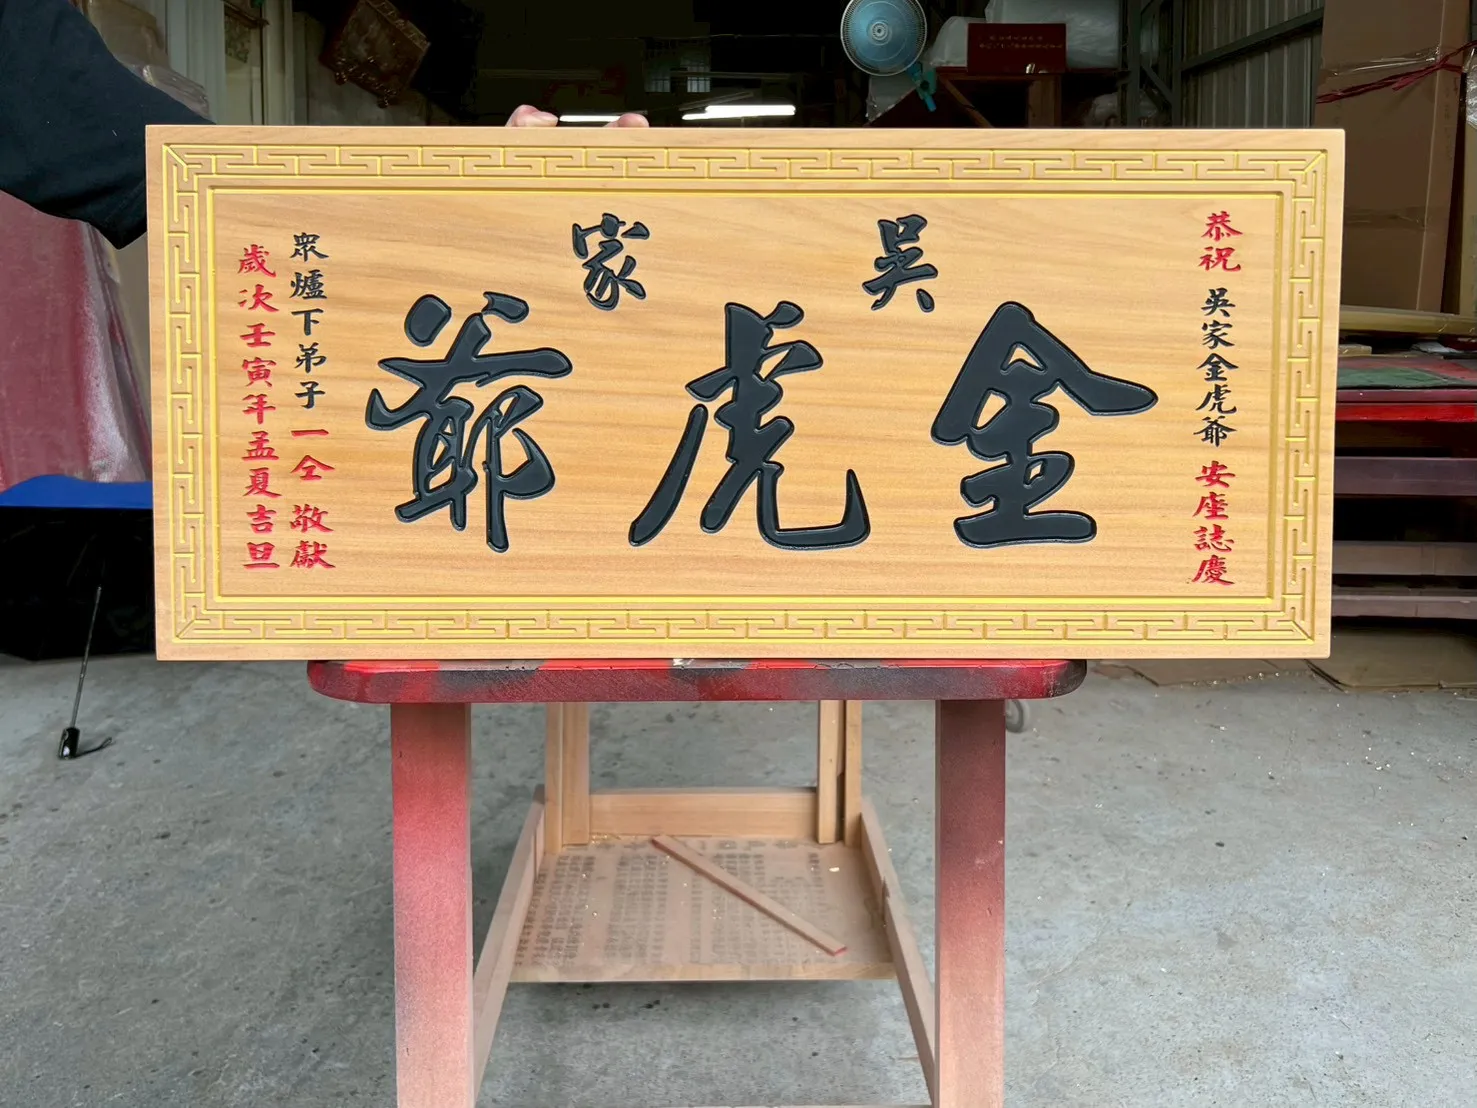 恭祝 吳家金虎爺 安座誌慶
吳家
金虎爺
眾爐下弟子 一仝 敬獻
歲次壬寅年孟夏吉旦